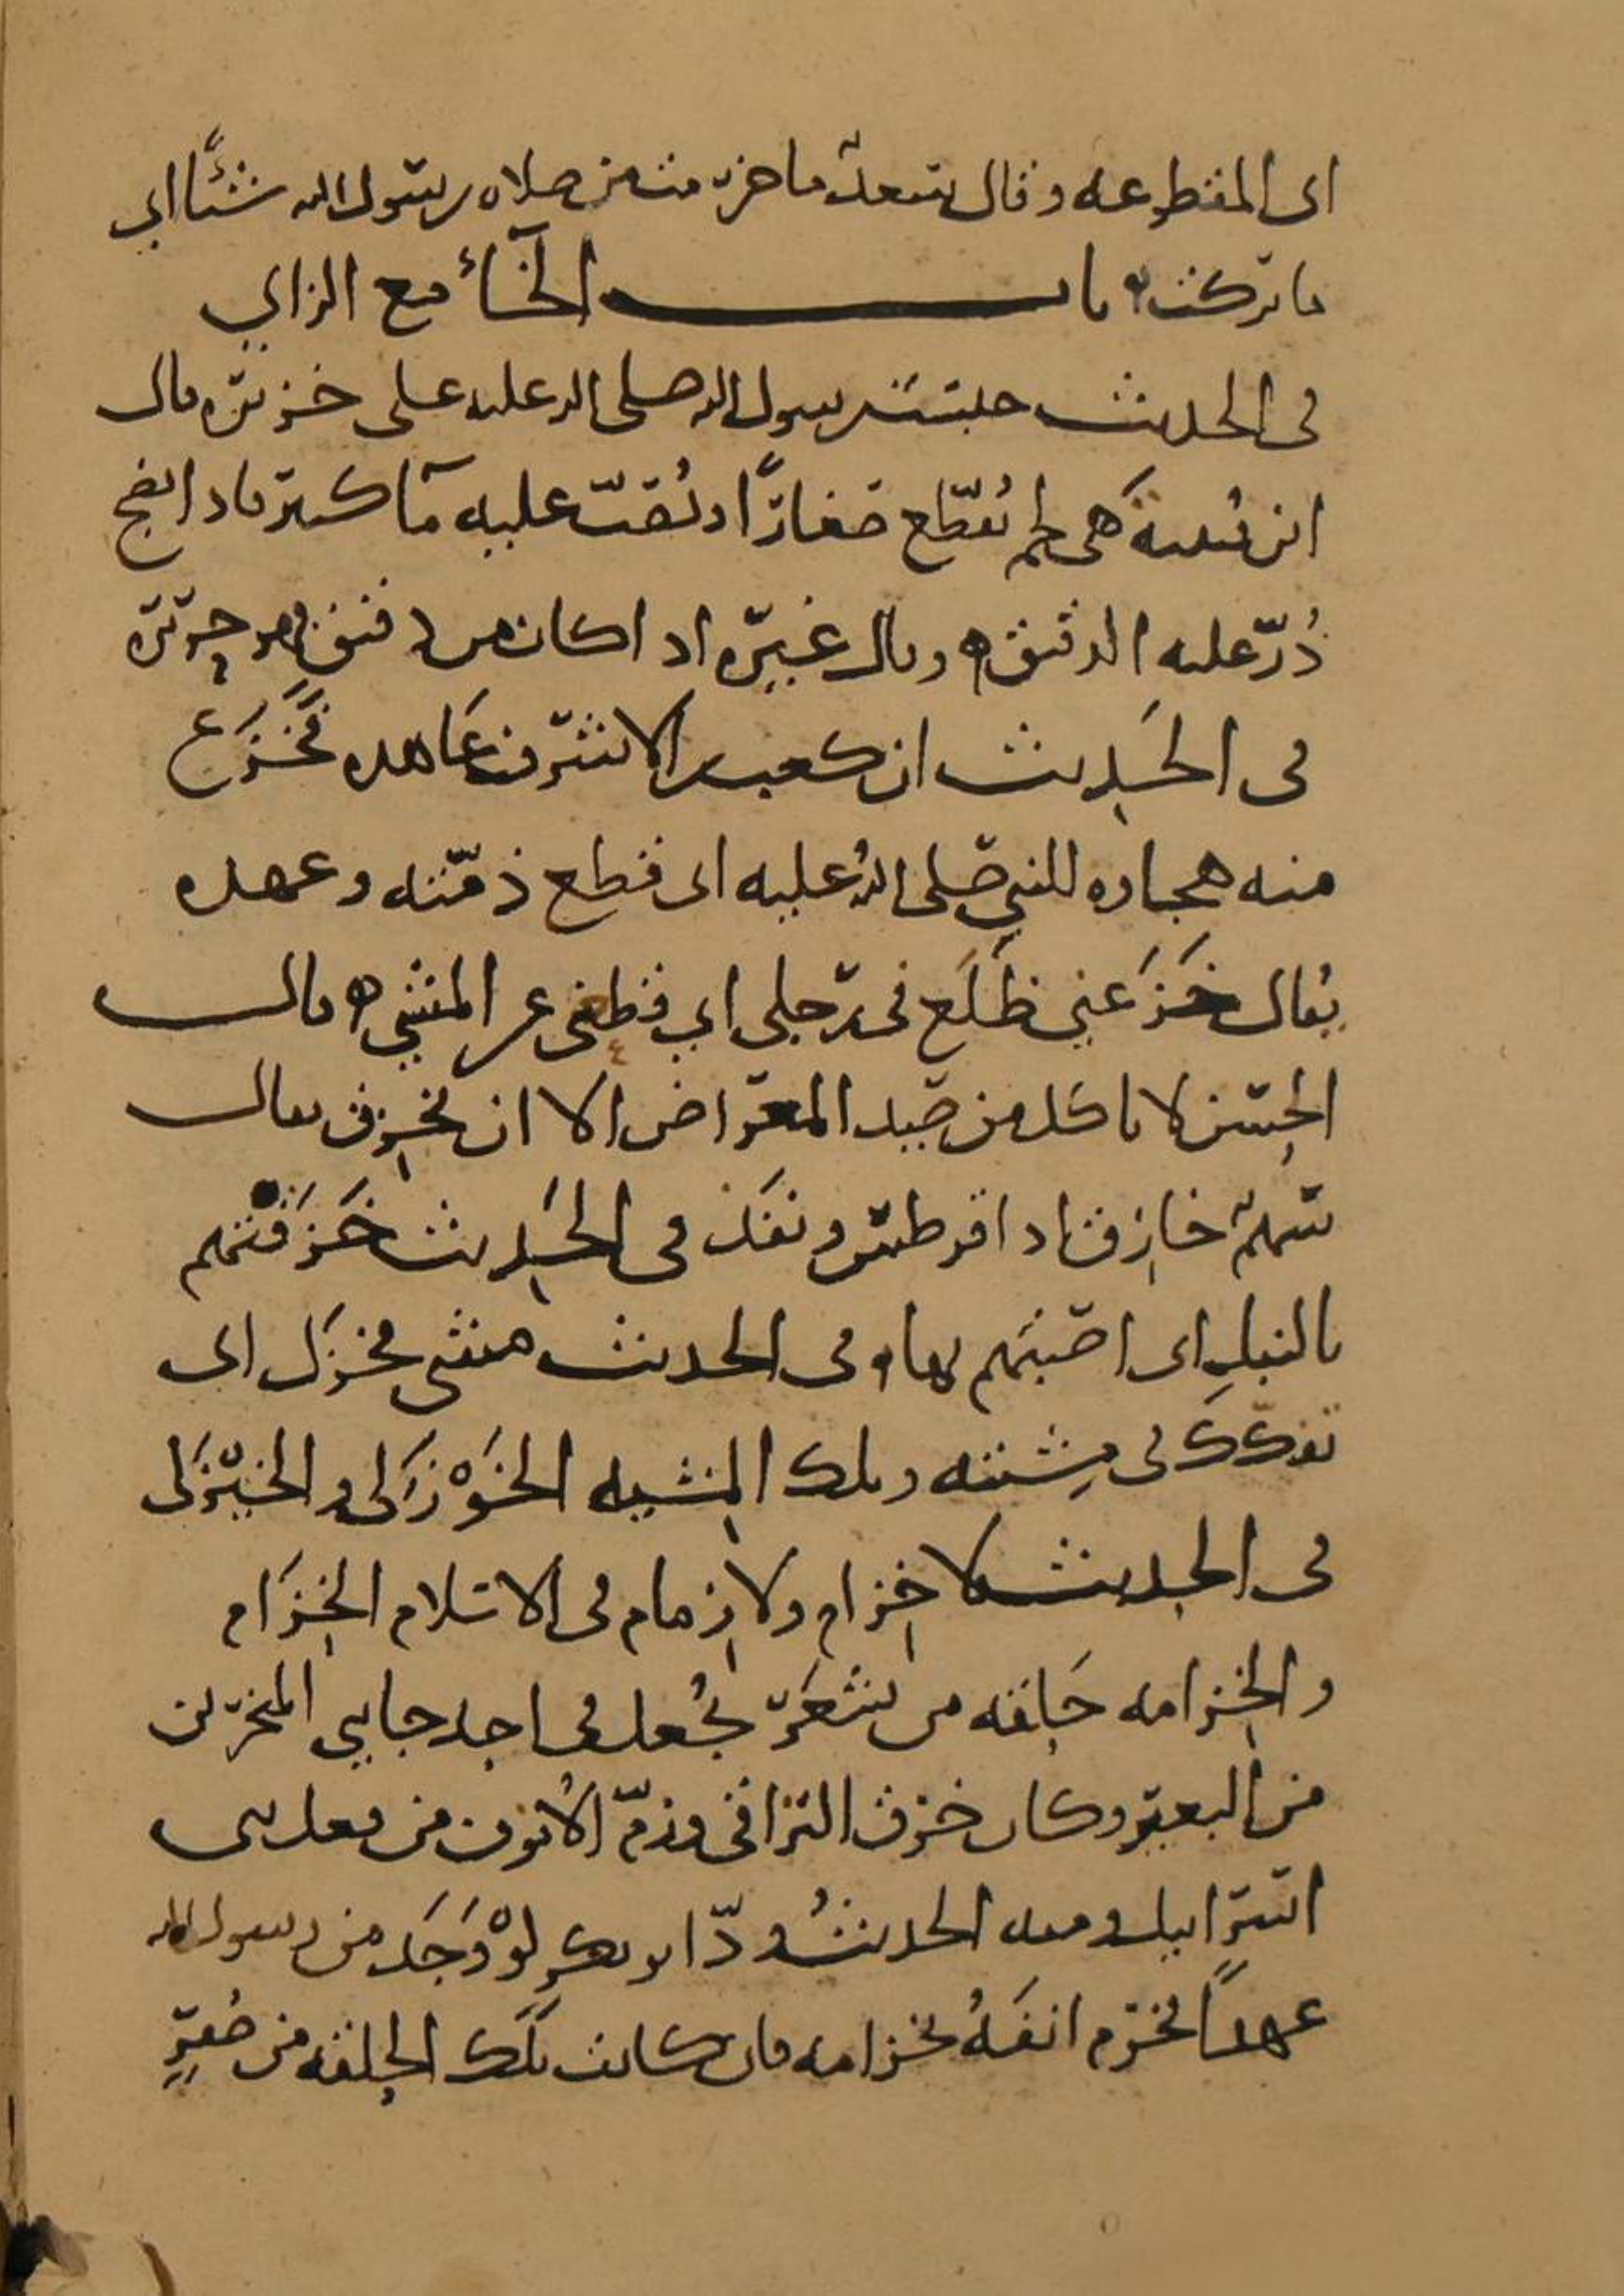 اى المقطوعه وقال سعد ما خرمت من صلاه رسول الله شيئًا اي
ما تركت ه باب الخاء مع الزاي
فى الحديث حبست رسول الله صلى الله عليه على خزيره قال
ابن قتيبة هى لحم يُقطّع صغارًا ويُصبّ عليه مآ كثير فاذا نضج
ذُرّ عليه الدقيق ه وقال غيره اذا كان من دقيق فهو حريره
فى الحَديث ان كعب بن الاشرف عَاهده فخَزَع
منه هجاوه للنبي صلى الله عليه اى قطع ذمّته وعهده
يقال خَزَعني ظَلَع فى رجلي اي قطعني عن المشي ه قال
الحسن لا تاكل من صيد المعراض الا ان يخزق يقال
سهم خازق اذا قرطس ونفذ فى الحَديث خَزَقْتهم
بالنبلِ اى اصبتهم بها ه فى الحديث مشى فخزَل اى
تفكك فى مِشيته وتلك المِشيه الخَوْزَلى والخَيْزلى
فى الحديث لا خِزام ولا زِمام فى الاسلام الخِزَام
والخِزامه حَلقه من شعَر تُجعل فى احد جانبي المنخرين
من البعير وكان خزق التراقى وزمّ الانوف من فعل بنى
اسرائيل ومنه الحديث ودّ ابو بكر لوْ وَجَد من رسول الله
عهدًا فخزم انفَهُ بخزامه فان كانت تلك الحلقه من صُفرٍ